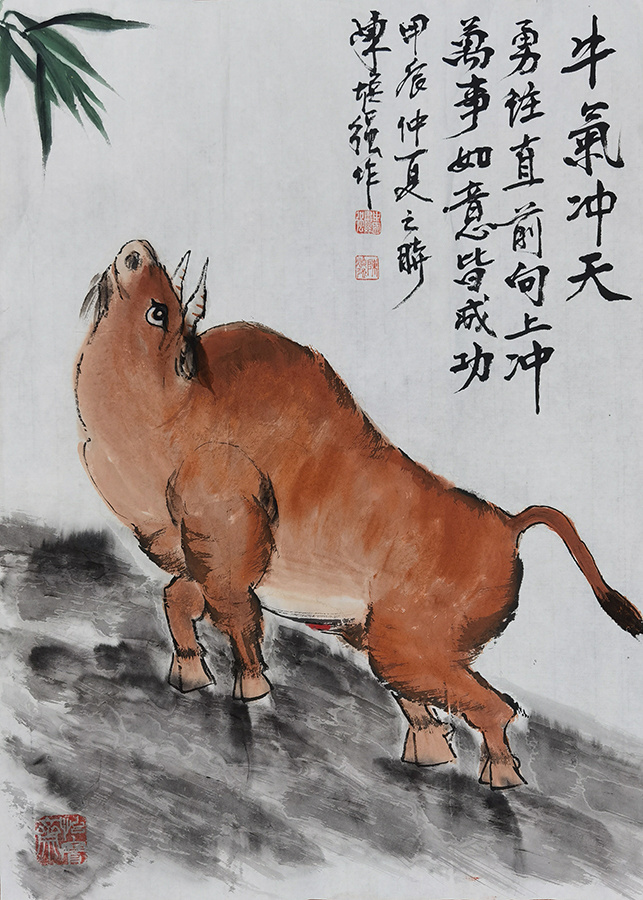 牛氣冲天
勇往直前向上冲
萬事如意皆成功
甲辰仲夏之時
陳
强作